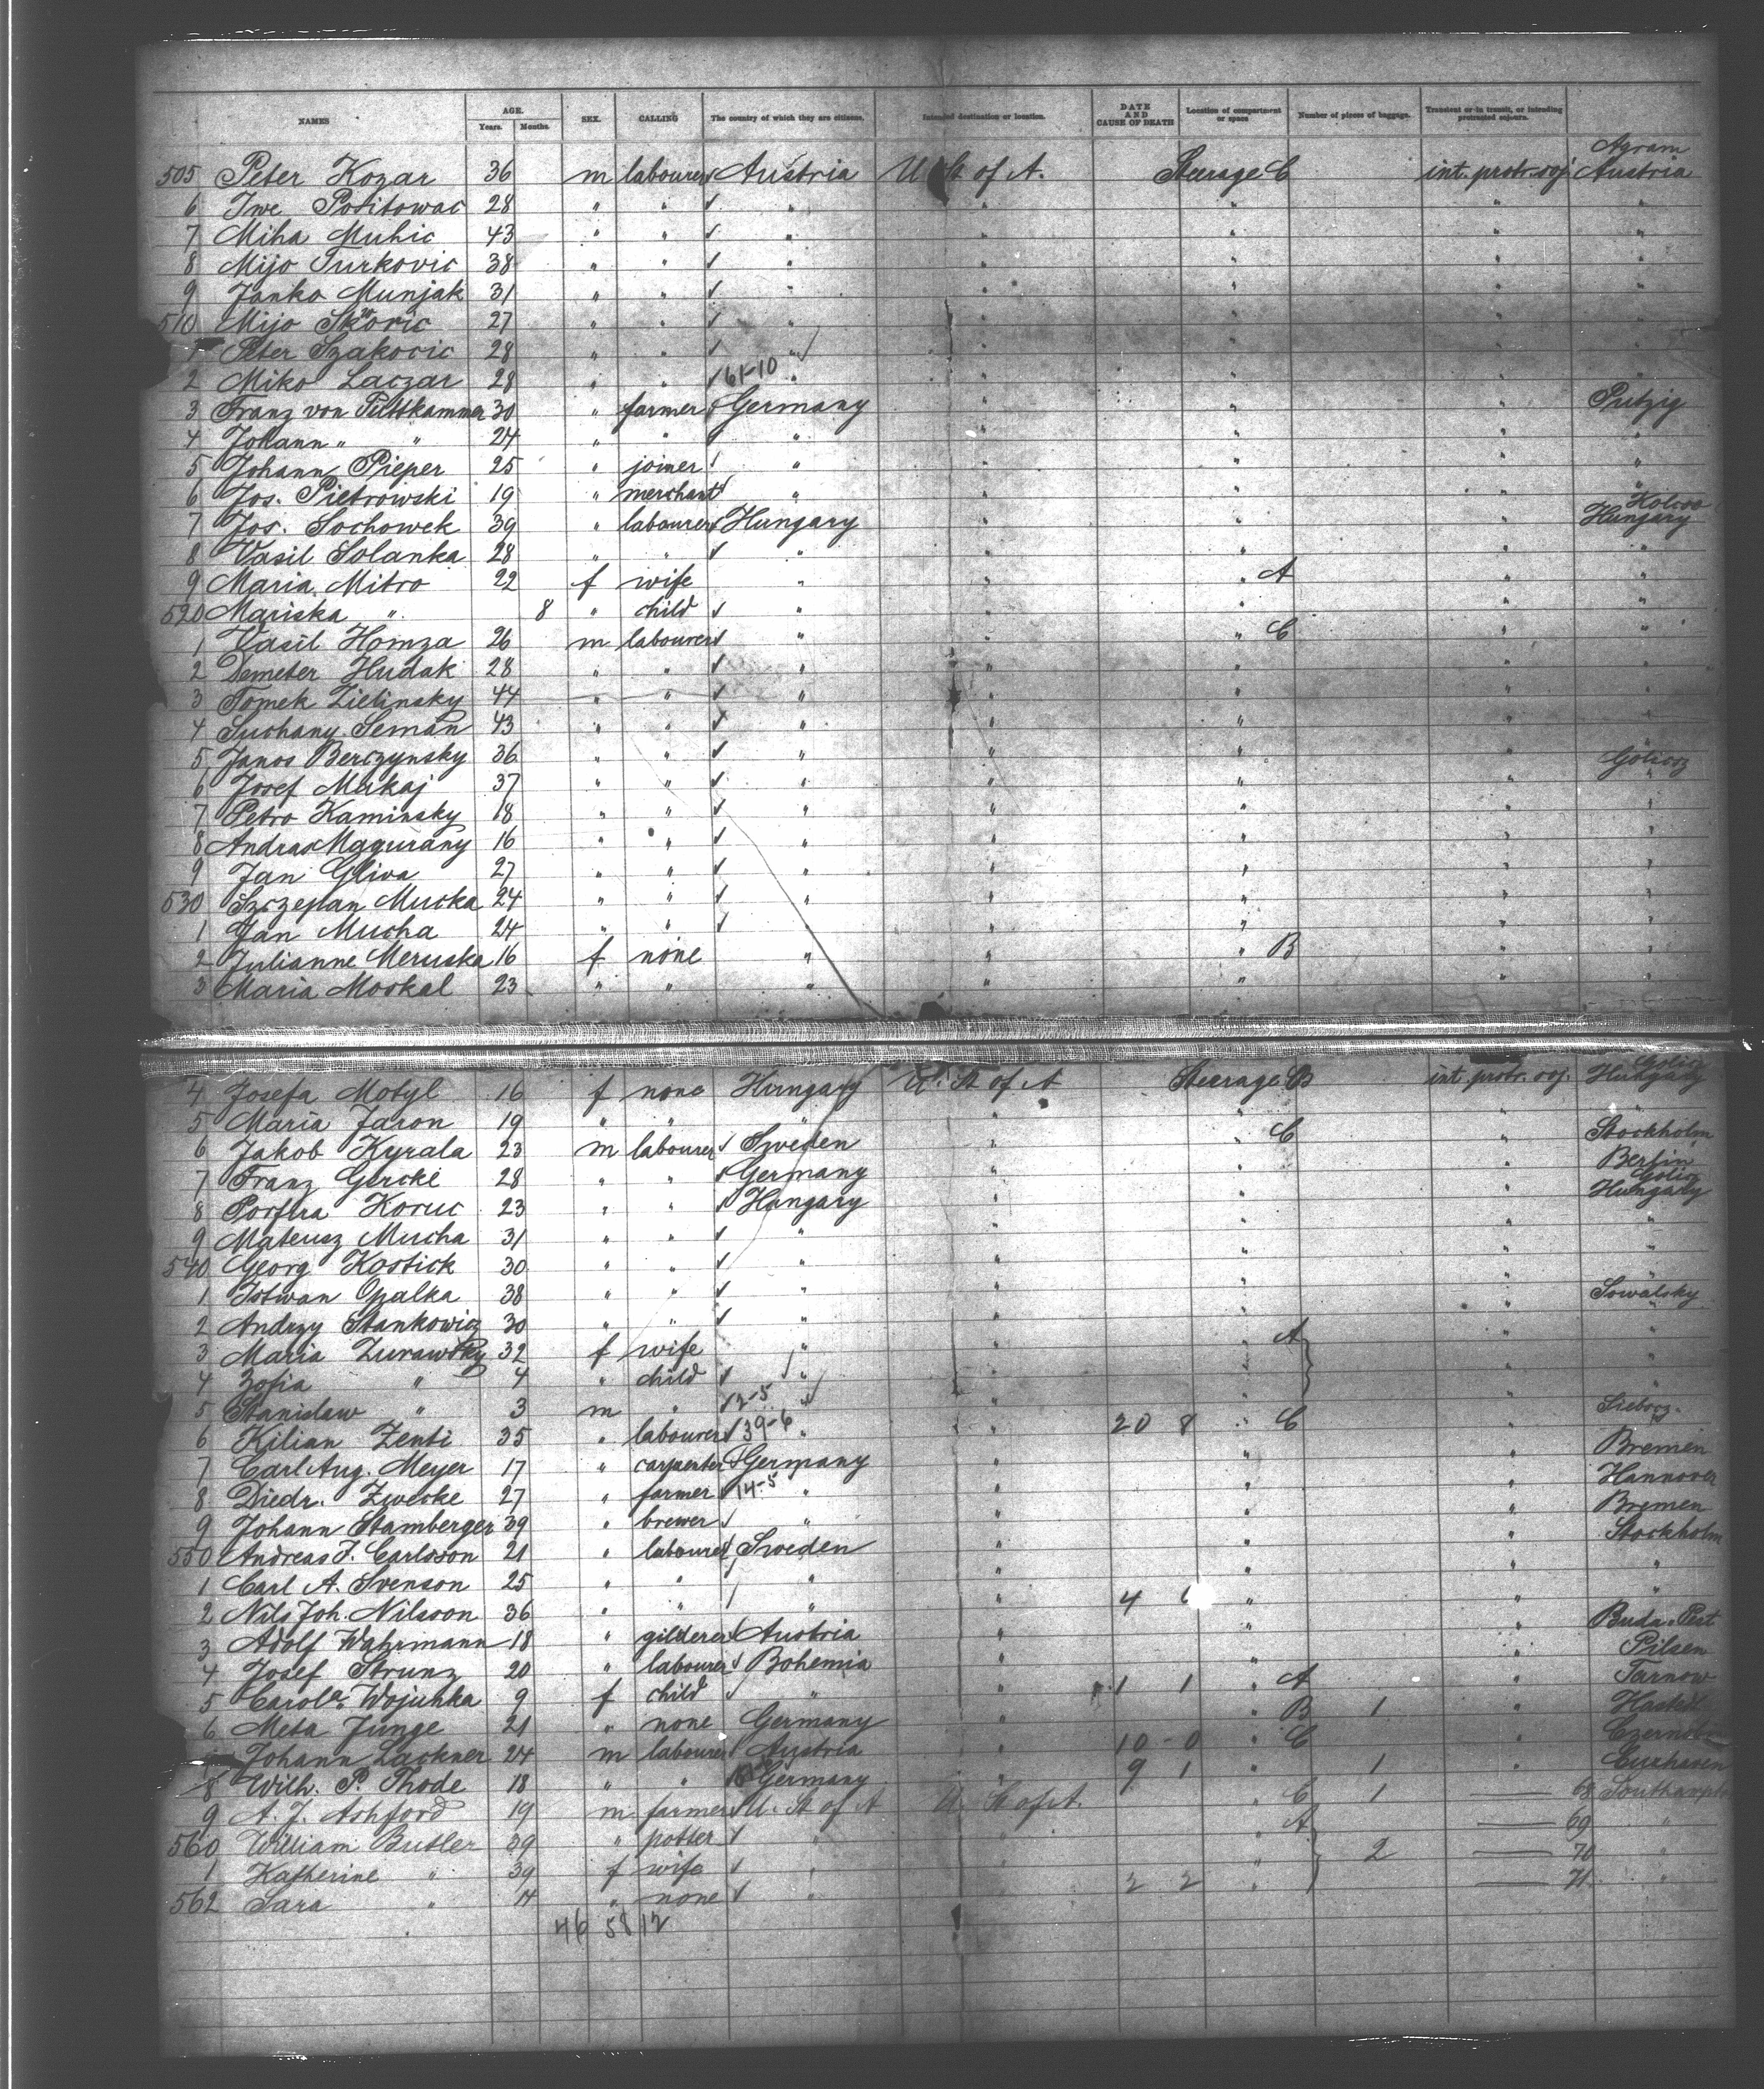 NAMES AGE. Years. Months. SEX. CALLING The country of which they are citizens. Intended destination or location. DATE AND CAUSE OF DEATH Location of compartment or space Number of pieces of baggage. Transient or in transit, or intending protracted sojourn.
Agram
505 Peter Kozar 36 m labourer Austria U. St of A. Steerage C int. protr. soj. Austria
6 Iwe Positowac 28 " " " " " " "
7 Miha Muhic 43 " " " " " " "
8 Mijo Turkovic 38 " " " " " " "
9 Janko Munjak 31 " " " " " " "
510 Mijo Skoric 27 " " " " " " "
1 Peter Szakocic 28 " " " " " " "
2 Miko Laczar 28 " " 61-10 " " " " "
3 Franz von Puttkammer 30 " farmer Germany " " " Putzig
4 Johann " " 24 " " " " " " "
5 Johann Pieper 25 " joiner " " " " "
6 Jos. Pietrowski 19 " merchant " " " " "
7 Jos. Sochowek 39 " labourer Hungary " " " Hungary
8 Vasil Solanka 28 " " " " " " "
9 Maria Mitro 22 f wife " " " A " "
520 Mariska " 8 " child " " " " "
1 Vasil Homza 26 m labourer " " " C " "
2 Demeter Hudak 28 " " " " " " "
3 Tomek Zielinsky 44 " " " " " " "
4 Suchany Seman 43 " " " " " " "
5 Janos Berczynsky 36 " " " " " " Golicz
6 Josef Makaj 37 " " " " " " "
7 Petro Kaminsky 18 " " " " " " "
8 Andras Magurany 16 " " " " " " "
9 Jan Gliva 27 " " " " " " "
530 Szczepan Mucka 24 " " " " " " "
1 Jan Mucha 24 " " " " " " "
2 Julianne Meruska 16 f none " " " B " "
3 Maria Moskal 23 " " " " " " "
Golicz
4 Josefa Motyl 16 f none Hungary U. St of A Steerage B int. protr. soj. Hungary
5 Maria Jaron 19 " " " " " " "
6 Jakob Kyrala 23 m labourer Sweden " " C " Stockholm
7 Franz Gercke 28 " " Germany " " " Berlin
Golicz
8 Porfira Koruc 23 " " Hungary " " " Hungary
9 Mateusz Mucha 31 " " " " " " "
540 Georg Kostick 30 " " " " " " "
1 Istwan Opalka 38 " " " " " " Sowalsky
2 Andrzy Stankowicz 30 " " " " " " "
3 Maria Zurawsky 32 f wife " " " A " "
4 Zofia " 4 " child " " " " "
5 Stanislaw " 3 m " 12-5 " " " "
6 Kilian Zenti 35 " labourer 39-6 " " 20 8 " C "
7 Carl Aug. Meyer 17 " carpenter Germany " " " Bremen
8 Diedr. Zwecke 27 " farmer 14-5 " " " " Hannover
9 Johann Stamberger 39 " brewer " " " " Bremen
550 Andreas J. Carlsson 21 " labourer Sweden " " " Stockholm
1 Carl A. Svenson 25 " " " " " " "
2 Nils Joh. Nilsson 36 " " " " 4 " " "
3 Adolf Wahrmann 18 " gilderer Austria " " " Buda-Pest
4 Josef Strunz 20 " labourer Bohemia " " " Pilsen
5 Carola Wojuhka 9 f child " " 1 1 " A " Tarnow
6 Meta Junge 21 " none Germany " " B 1 "
Johann Lackner 24 m labourer Austria " 10-0 " C "
8 Wilh. P. Thode 18 " " Germany " 9 1 " 1 " Cuxhaven
9 A. J. Ashford 19 m farmer U. St of A U. St of A. " C 1 — 68 Southampton
560 William Butler 39 " potter " " " A — 69 "
1 Katherine " 39 f wife " " " 2 — 70 "
562 Sara " 14 " none " " 2 2 " — 71 "
46 58 12